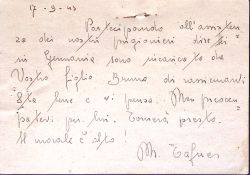 17-9-43
Partecipando all'assisten
za dei nostri prigionieri diretti
in Germania sono incaricato da
Vostro figlio Bruno di rassicurarvi
Sta bene e vi pensa. Non preoccu
patevi per lui. Tornerà presto.
Il morale è alto!
M.